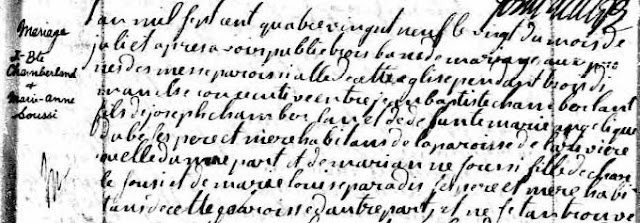 Mariage
J-Bte
Chamberland
+
Marie-Anne
Soussi
Lan mil sept cent quatrevingt neuf le vingt du mois de
juliet apres avoir publie trois bans de mariage aux pro
nes des messe paroissialle de cette eglise pendant trois di
manche consecutive entre jean baptiste chamberlant
fils de joseph chamberlan et de defunte marie angelique
dube les pere et mere habitans de la paroise de la riviere
ouelle dune part et de marianne soussi fille de
le sousi et de marie louise paradis ses pere et mere habi
tans de cette paroisse dautre part et ne setant trouv